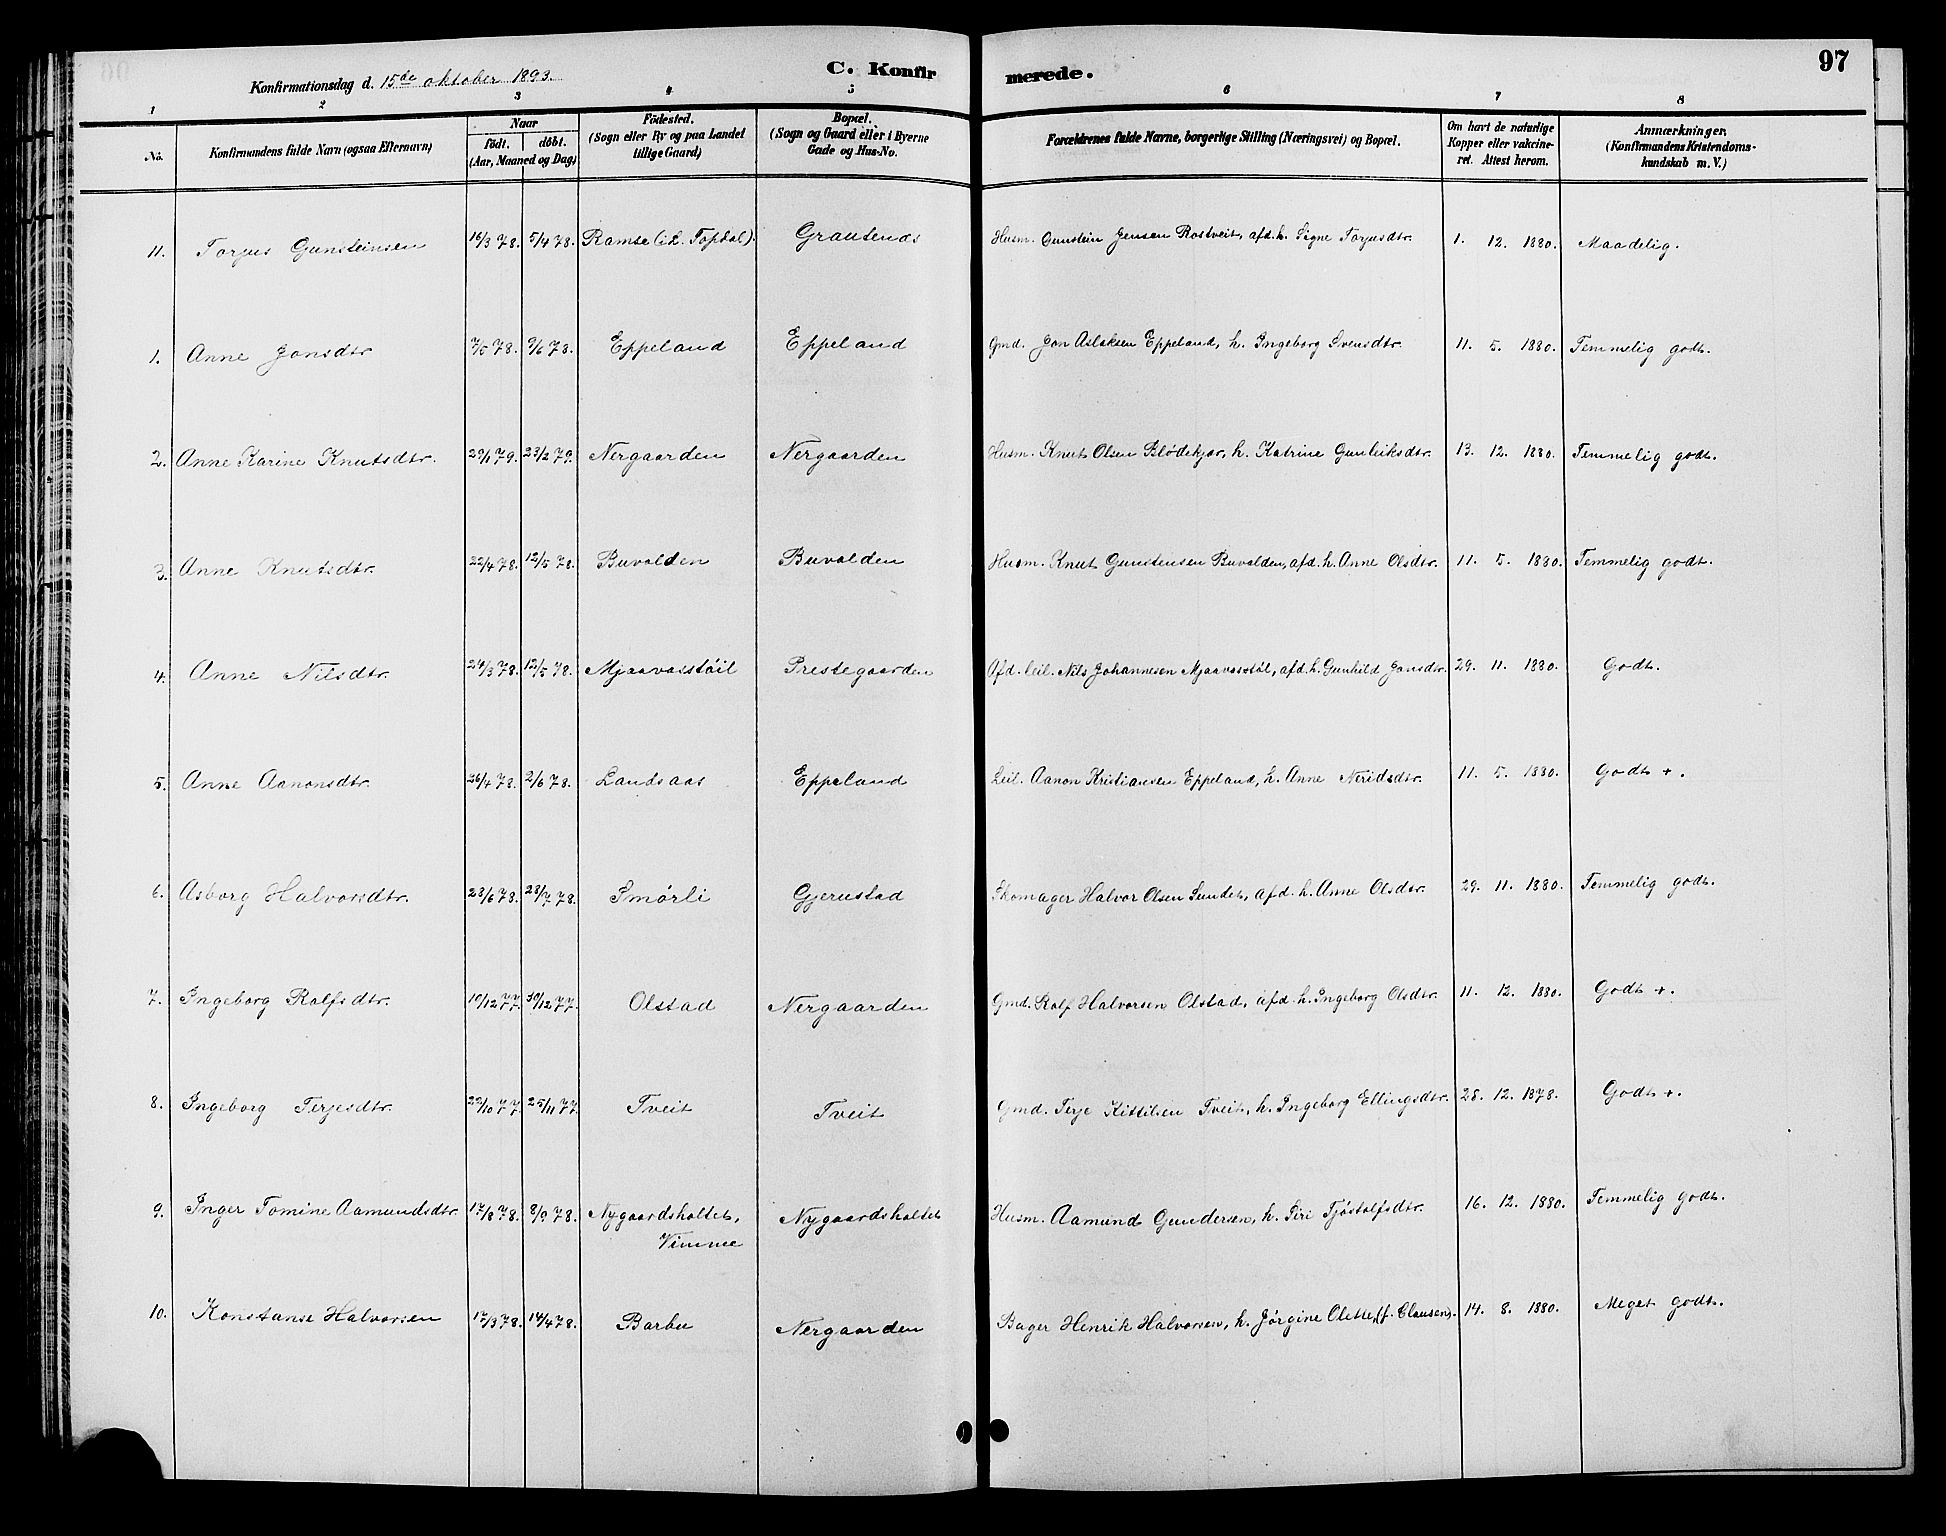 97
C. Konfirmerede.
Konfirmationsdag d. 15de oktober 1893.
1 2 3 4 5 6 7 8
No.
Konfirmandens fulde Navn (ogsaa Efternavn)
Naar
födt. döbt.
(Aar, Maaned og Dag)
Födested.
(Sogn eller By og paa Landet
tillige Gaard)
Bopæl.
(Sogn og Gaard eller i Byerne
Gade og Hus-No.
Forældrenes fulde Navne, borgerlige Stilling (Næringsvei) og Bopæl.
Om havt de naturlige
Kopper eller vakcine-
ret. Attest herom.
Anmærkninger.
(Konfirmandens Kristendoms-
kundskab m. V.)
11. Torjus Gunsteinsen 16/3 78. 5/4 78. Ramse (i L. Topdal). Grautenes Husm. Gunstein Jensen Rostveit, afd. h. Signe Torjusdtr. 1. 12. 1880. Maadelig.
1. Anne Jonsdtr. 7/5 78. 9/6 78. Eppeland Eppeland Gmd. Jon Aslaksen Eppeland, h. Ingeborg Svensdtr. 11. 5. 1880. Temmelig godt.
2. Anne Karine Knutsdtr. 29/1 79. 23/2 79. Nergaarden Nergaarden Husm. Knut Olsen Blødekjær, h. Katrine Gunleiksdtr. 13. 12. 1880. Temmelig godt.
3. Anne Knutsdtr. 22/4 78. 12/5 78. Buvolden Buvolden Husm. Knut Gunstensen Buvolden, afd. h. Anne Olsdtr. 11. 5. 1880. Temmelig godt.
4. Anne Nilsdtr. 24/3 78. 12/5 78. Mjaavasstöil Prestegaarden Afd. leil. Nils Johannesen Mjaavasstöl, afd. h. Gunhild Jonsdtr. 29. 11. 1880. Godt.
5. Anne Aanonsdtr. 26/4 78. 2/6 78. Landsaas Eppeland Leil. Aanon Kristiansen Eppeland, h. Anne Neridsdtr. 11. 5. 1880. Godt +.
6. Asborg Halvorsdtr. 23/6 78. 28/7 78. Smörli Gjerustad Skomager Halvor Olsen Sundet, afd. h. Anne Olsdtr. 29. 11. 1880. Temmelig godt.
7. Ingeborg Rolfsdtr. 10/12 77. 30/12 77. Olstad Nergaarden Gmd. Rolf Halvorsen Olstad, afd. h. Ingeborg Olsdtr. 11. 12. 1880. Godt +.
8. Ingeborg Terjesdtr. 22/10 77. 25/11 77. Tveit Tveit Gmd. Terje Kittilsen Tveit, h. Ingeborg Ellingsdtr. 28. 12. 1878. Godt +.
9. Inger Tomine Aamundsdtr. 17/8 78. 8/9 78. Nygaardsholtet, Nygaardsholtet Husm. Aamund Gundersen, h. Siri Tjöstolfsdtr. 16. 12. 1880. Temmelig godt.
Vimme
10. Konstanse Halvorsen 17/3 78. 14/4 78. Barbu Nergaarden Bager Henrik Halvorsen, h. Jörgine Olette, (f. Clausen). 14. 8. 1880. Meget godt.